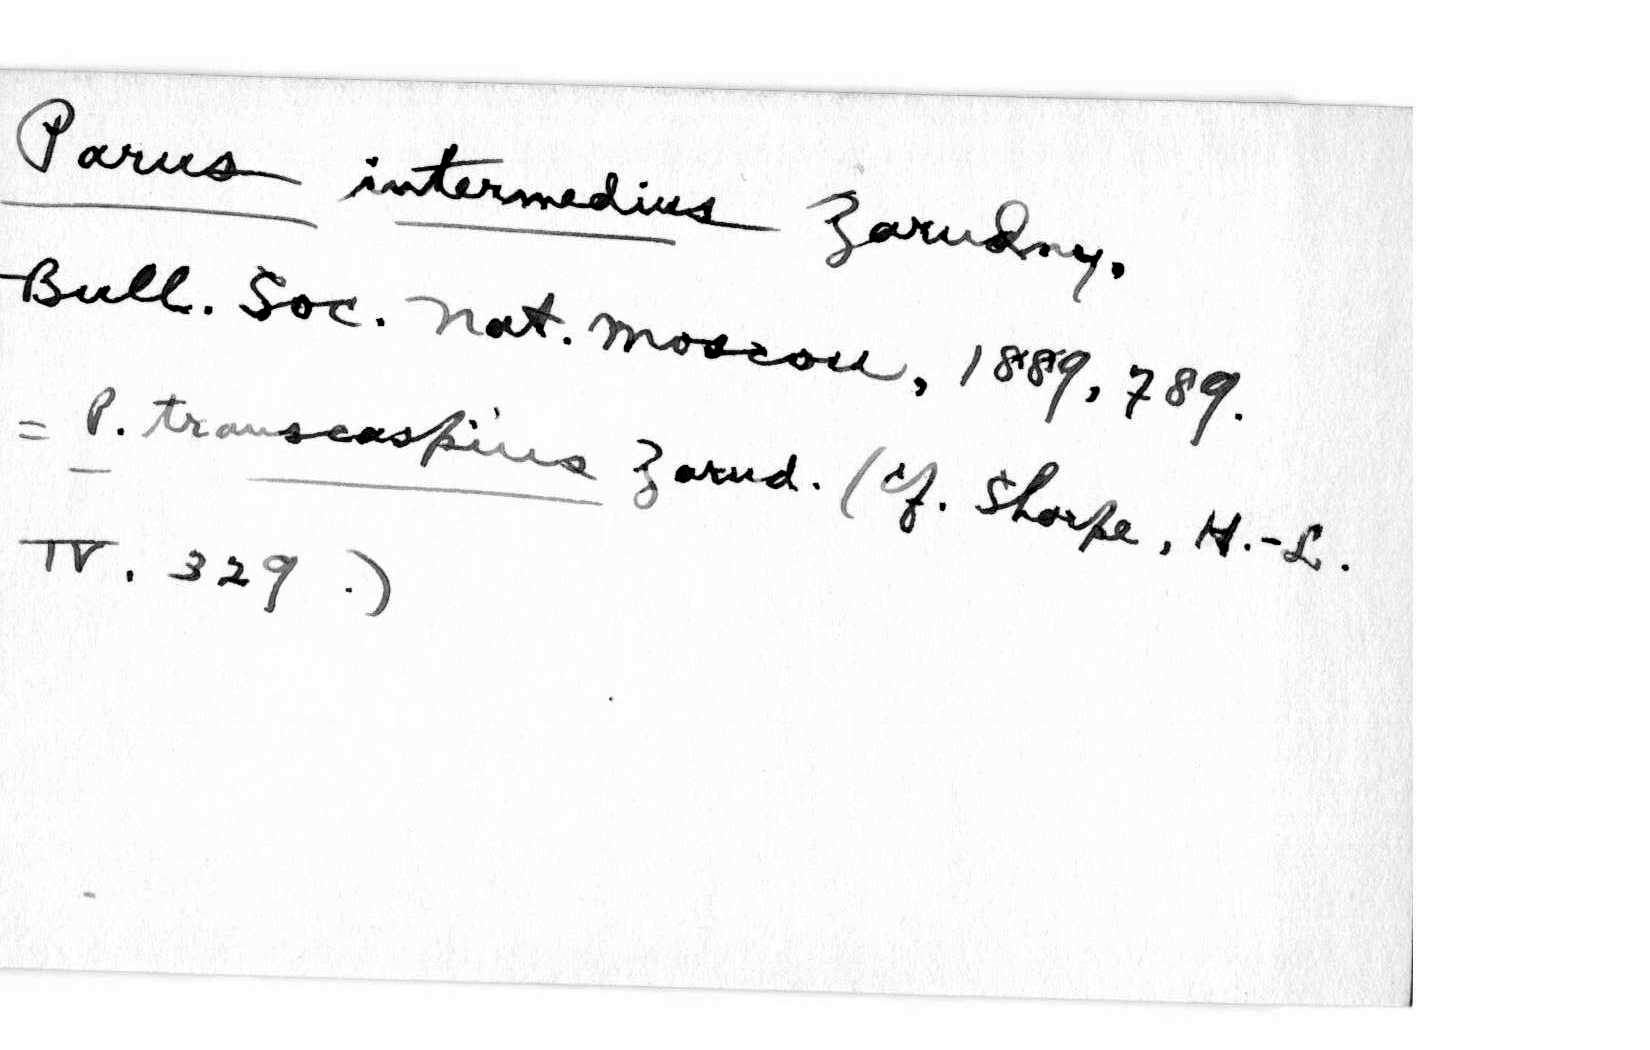 Parus intermedius Zarudny,
Bull. Soc. Nat. Moscou, 1889, 789.
= P. transcaspius Zarud. (Cf. Sharpe, H.-L.
IV. 329.)